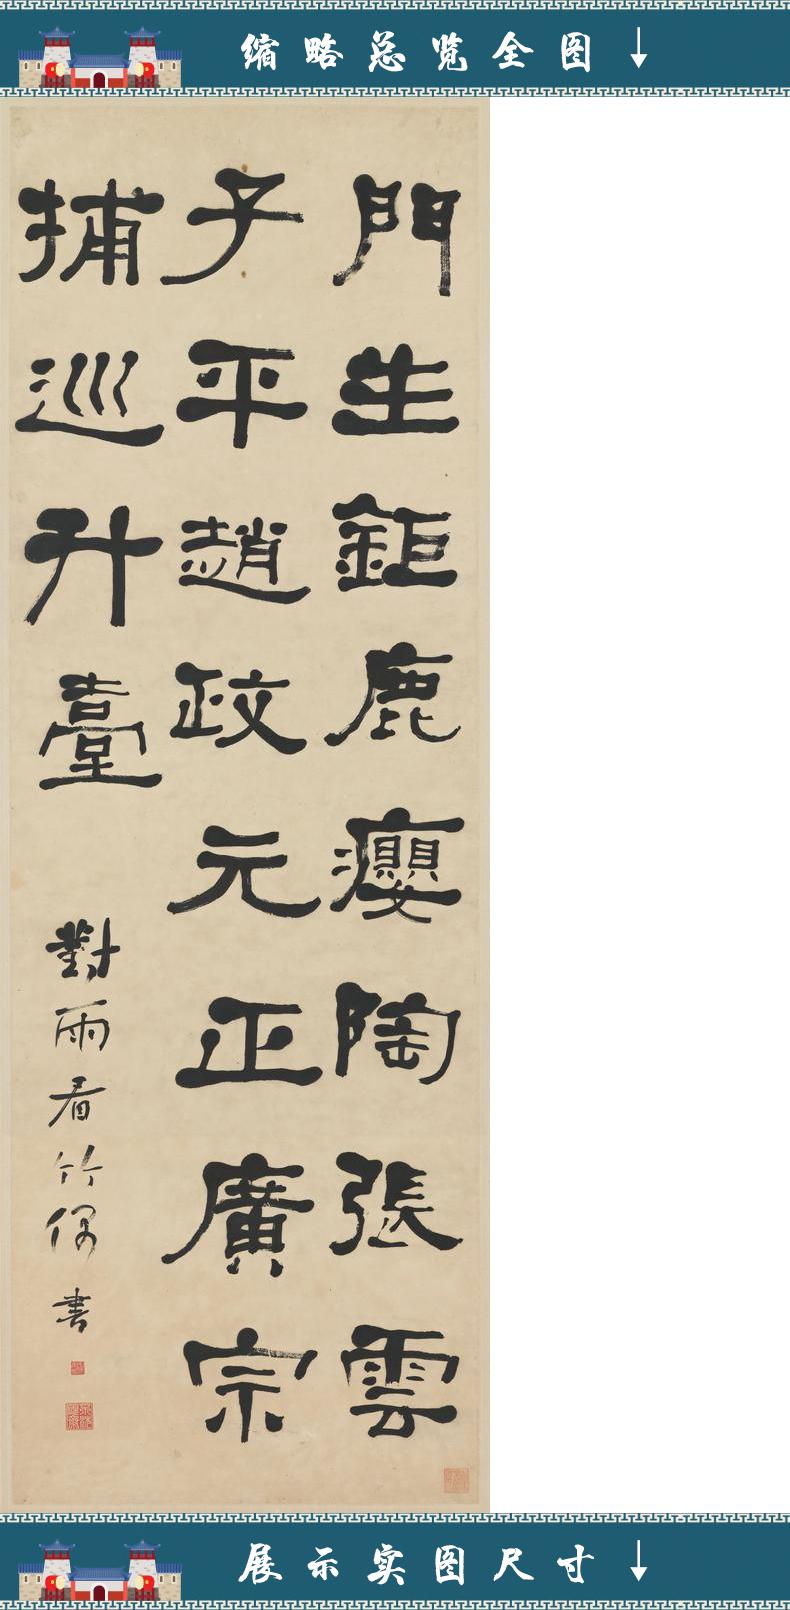 缩略总览全图
門生鉅鹿癭陶張雲
子平趙政元正廣宗
捕巡升臺
對雨看竹偶書
展示实图尺寸